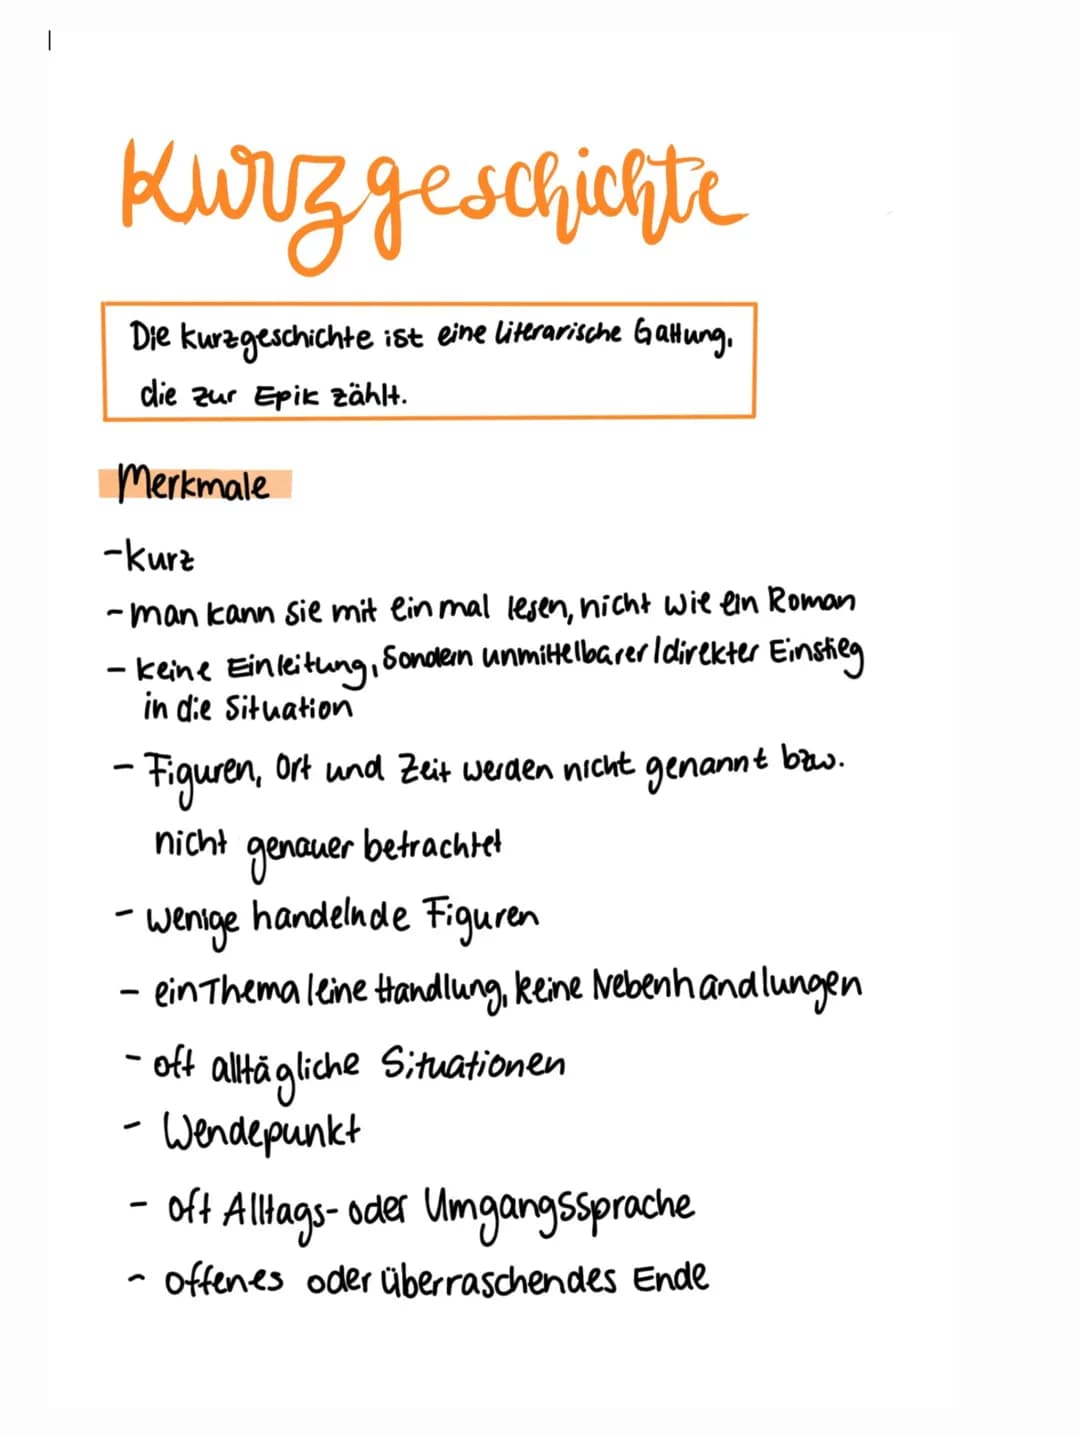 Kurzgeschichte
Die Kurzgeschichte ist eine literarische Gattung,
die zur Epik zählt.
Merkmale
-kurz
- man kann sie mit einmal lesen, nicht wie ein Roman
- keine Einleitung, sondern unmittelbarer/direkter Einstieg
in die Situation
- Figuren, Ort und Zeit werden nicht genannt bzw.
nicht genauer betrachtet
- wenige handelnde Figuren
- ein Thema/eine Handlung, keine Nebenhandlungen
- oft alltägliche Situationen
- Wendepunkt
- oft Alltags- oder Umgangssprache
- offenes oder überraschendes Ende